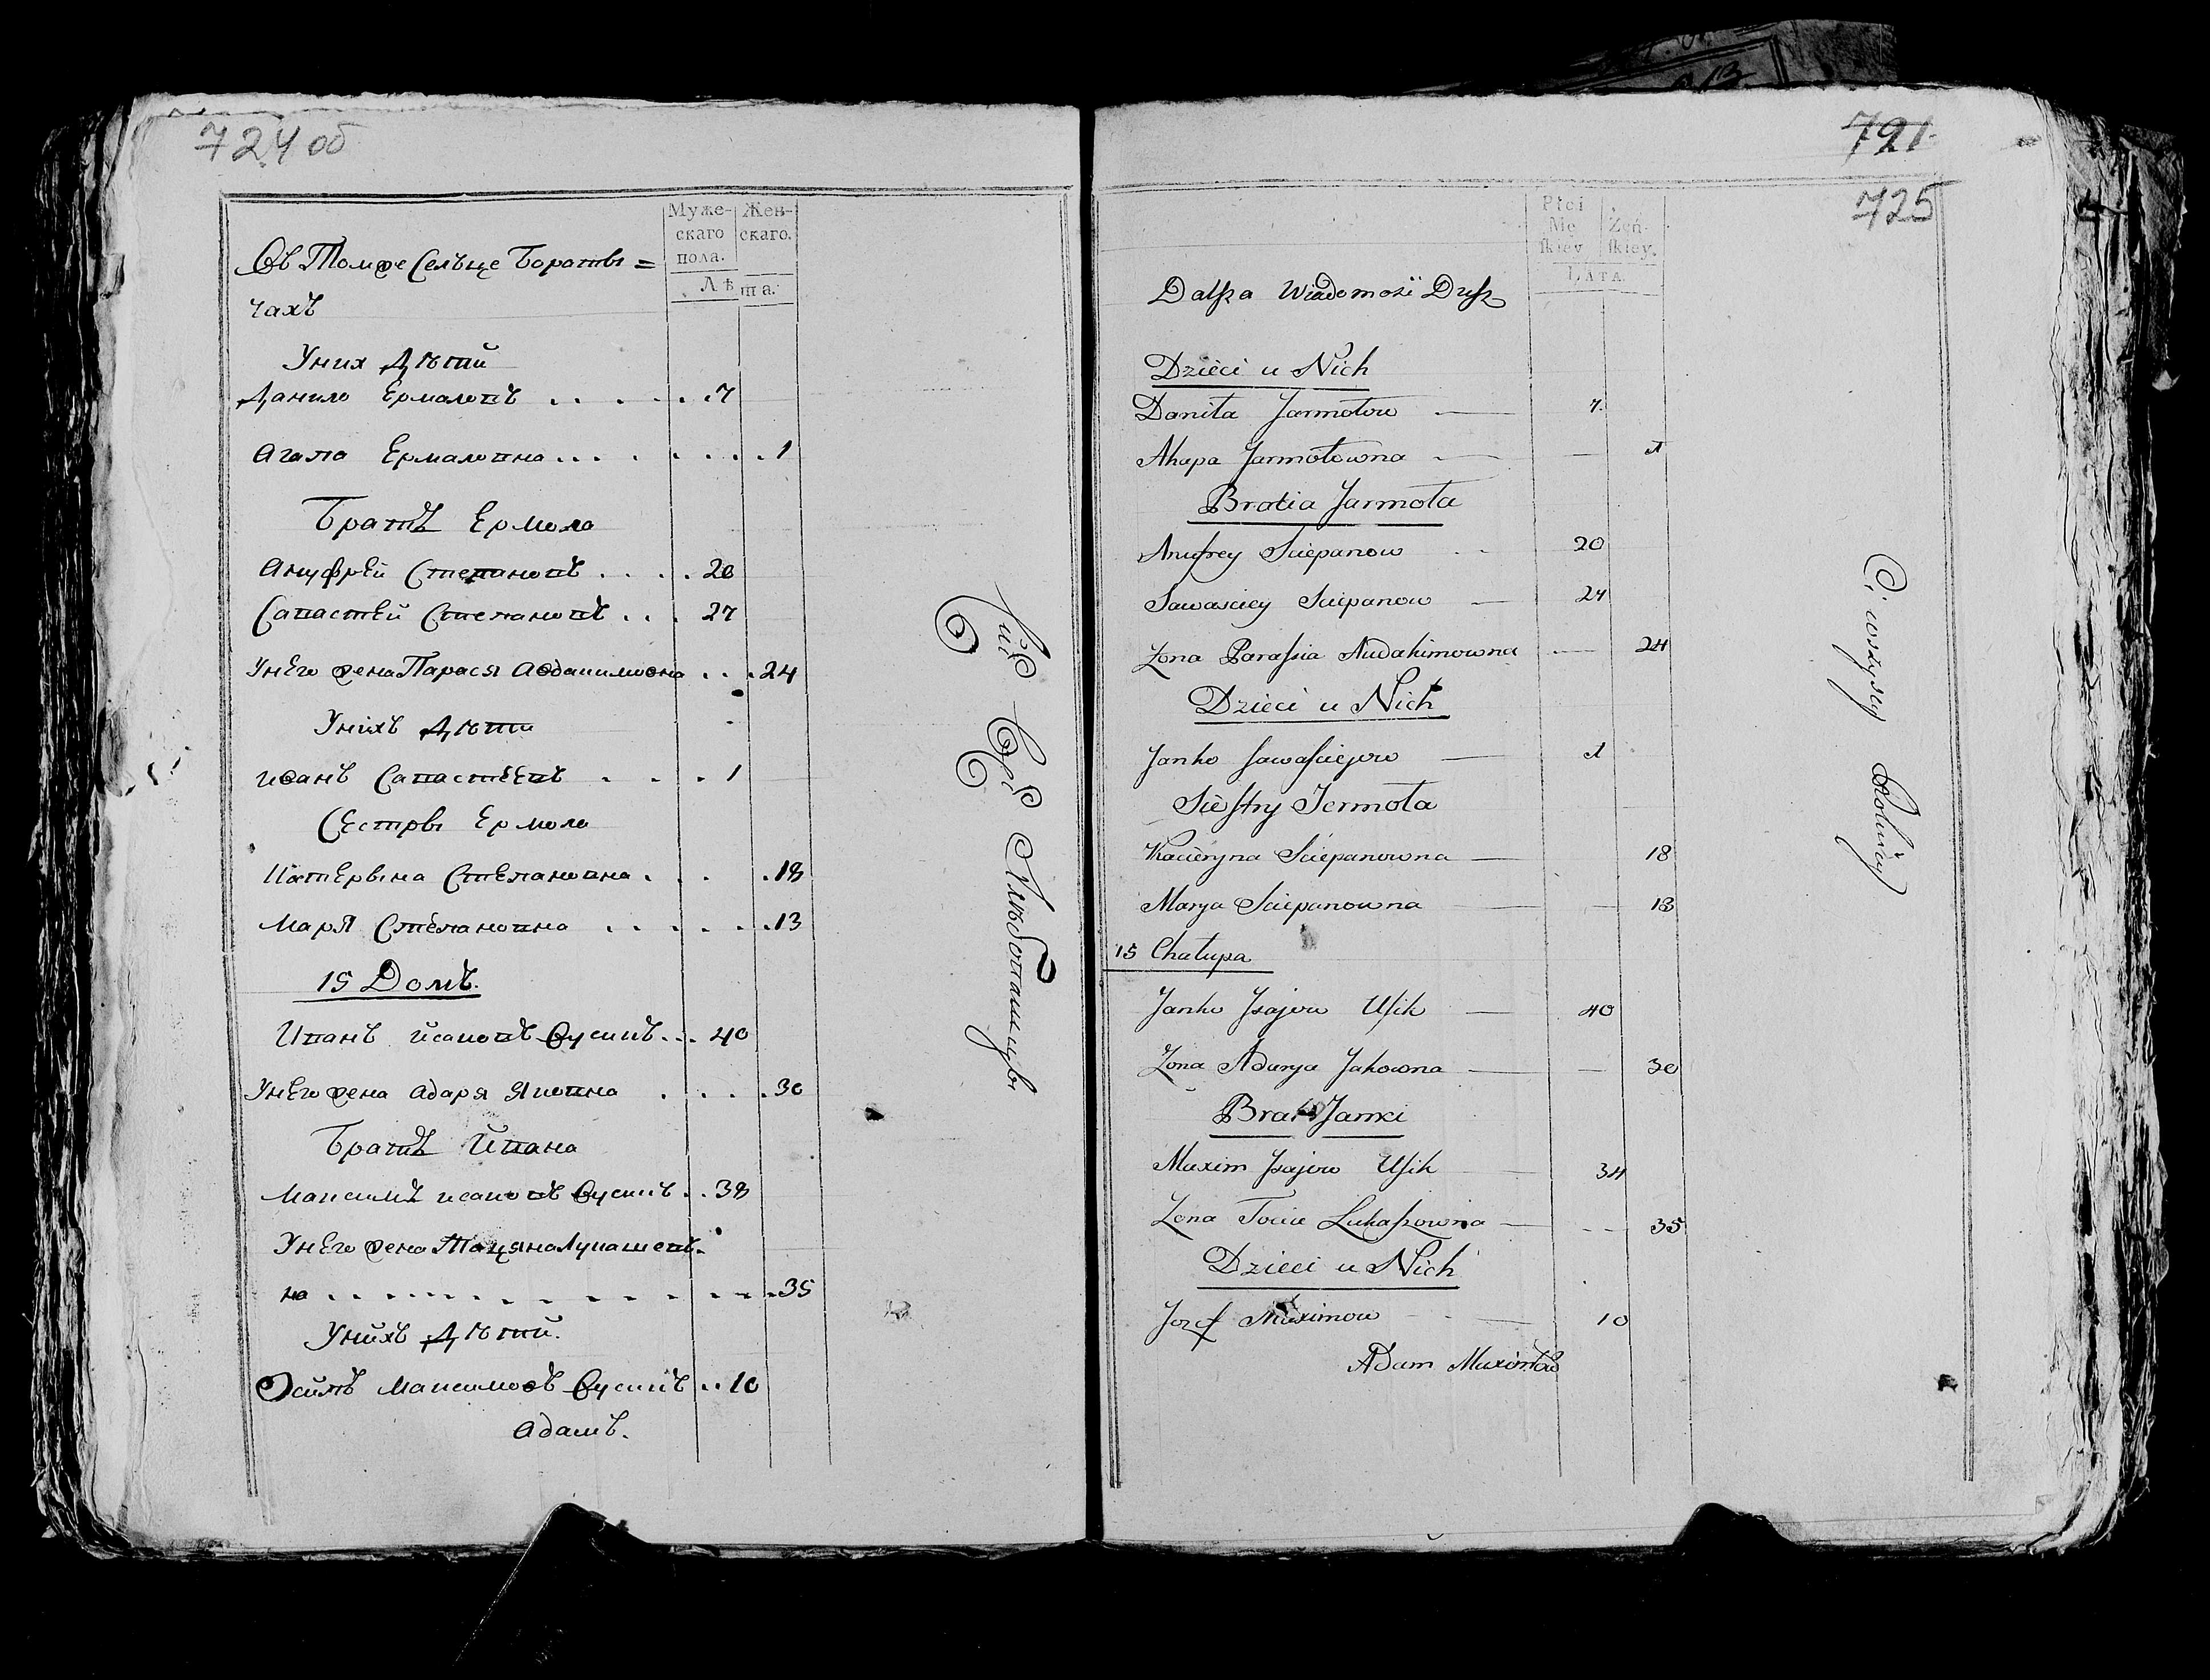 724 об
Муже-
скаго
пола.
Жен-
скаго.
Лѣта.
Въ Томже Сельце Бораты=
чахъ
Уних Дѣтй
Данило Ермоловъ . . . . . 7
Агапа Ермоловна . . . . . . . 1
Братъ Ермола
Ануфрей Степановъ . . . . 20
Савастей Степановъ . . . 27
Унего жена Парася Авдакимовна . . . 24
Унихъ Дѣти
Иванъ Савастеевъ . . . . 1
Сестры Ермола
Катерына Степановна . . . . 18
Маря Степановна . . . . . . 13
15 Домъ.
Иванъ Исаковъ Вусикъ . . . 40
Унего жена Адаря Яковна . . . . 30
Братъ Ивана
Максимъ Исаковъ Вусикъ . . 38
Унего жена Тацяна Лукашев-
на . . . . . . . . . . . . . 35
Унихъ Дѣтй.
Осипъ Максимовъ Вусикъ . . 10
Адамъ.
Сий Всѣ Хлѣбопашцы
721
725
Płci
Mę
ſkiey
Żeń-
ſkiey.
LATA
Dalſza Wiadomość Duſz
Dzieci u Nich
Daniła Jarmołow — 7.
Ahapa Jarmołowna — — 1
Bratia Jarmoła
Anufrey Sciepanow - - 20
Sawasciey Sciepanow — 27
Zona Paraſsia Audakimowna — 24
Dzieci u Nich
Janko Sawaſciejow — 1
Sieſtry Jermoła
Kacieryna Sciepanowna — 18
Marya Sciepanowna — — 13
15 Chałupa
Janko Jsajow Uſik — 40
Zona Adarya Jakowna — — 30
Brat Janki
Maxim Jsajow Uſik — 34
Zona Tacia Lukaſzowna — - - 35
Dzieci u Nich
Jozef Maximow — 10
Adam Maximow
Ci wszyscy Rolnicy